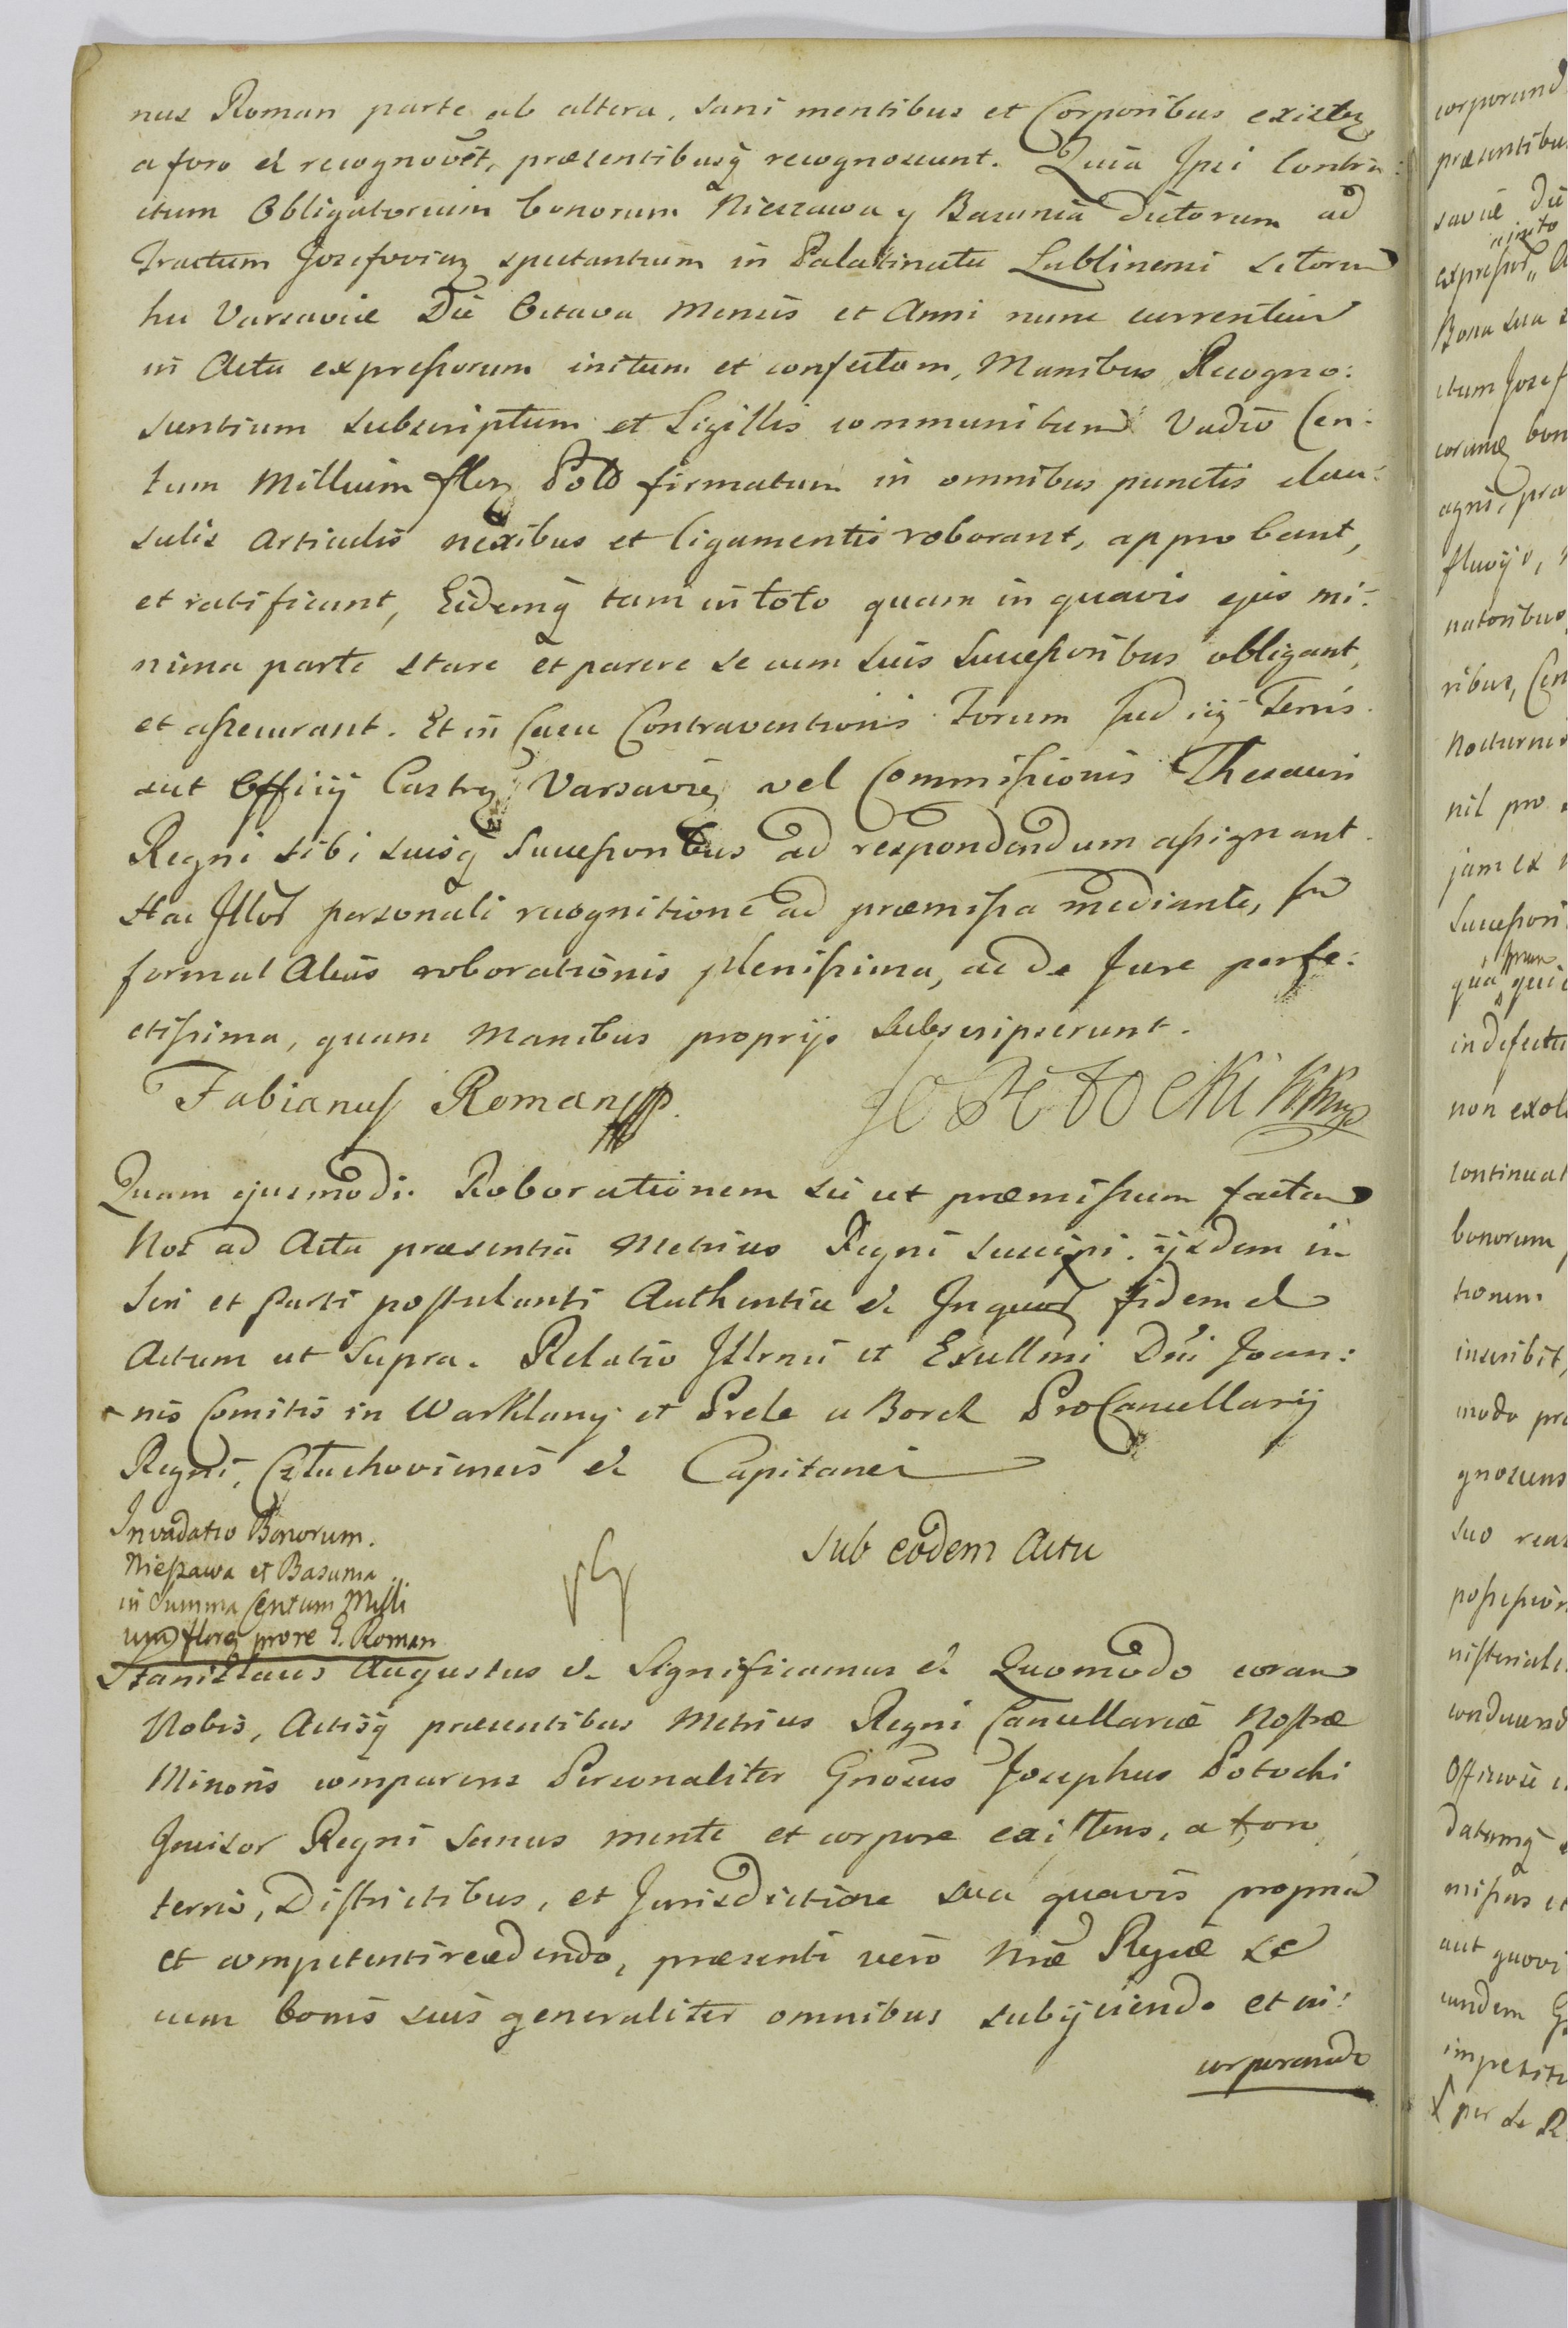 nus Roman parte ab altera, sani mentibus et Corporibus existen
a foro et recognoverut, præsentibusq recognoscunt. Quia Ipsi Contra:
ctum Obligatorium bonorum Nieszawa y Basunia dictorum ad
Tractum Jozefovien spectantium in Palatinatu Lublinensi sitorum
hic Varsaviæ Die Octava Mensis et Anni nunc currentium
in Actu expressorum initum et confectum, Manibus Recogno:
scentium subscriptum et Sigillis communitum Vadio Cen:
tum Millium flen Polo firmatum in omnibus punctis clau:
sulis articulis nexibus et ligamentis roborant, approbant,
et ratificant, Eidemq tam in toto quam in quavis ejus mi:
nima parte stare et parere se cum suis Successoribus obligant,
et assecurant. Et in Casu Contraventionis Forum Judicij Terris
aut Officij Castren Varsavien vel Commissionis Thesauri
Regni sibi suisq Successoribus ad respondendum assignant.
Hac Illor personali recognitione ad præmissa mediante, sub
formal Alius roborationis plenissima, ac de Jure perfe:
ctissima, quam Manibus proprijs subscripserunt.
Fabianus Roman mpp.
JO Potocki KKmp
Quam ejusmodi Roborationem sic ut præmissum factam
Nos ad Acta præsentia Metrices Regni suscipi. ijsdem in
seri et Parti postulanti Authentice & In quor fidem &
Actum ut Supra. Relatio Illrmi et Exellmi Dni Joan:
nis Comitis in Warklany et Prele a Borch ProCancellarij
Regni, Człuchoviensis & Capitanei
Invadatio Bonorum.
Nieszawa et Basunia
in Summa Centum Milli
um floren prore G. Roman
Sub eodem Actu
Stanislaus Augustus & Significamus & Quomodo coram
Nobis, Actisq præsentibus Metrices Regni Cancellariæ Nostræ
Minoris comparens Personaliter Gnosus Josephus Potocki
Incisor Regni sanus mente et corpore existens, a foro
terris, Districtibus, et Jurisdictione sua quavis propria
et competenti recedendo, præsenti vero Nræ Regiæ se
cum bonis suis generaliter omnibus subijciendo et in:
corporando
corporand
præsentibu
saviæ Die
Bona sua
ctum Jozef
agni, pra
fluvijs,
natoribus
ribus, Cen
Nocturnis
nil pro
jam ex
Successori
in defectu
non exol
continuat
bonorum
tionem
inscribit,
modo pro
gnoscens
suo rea
possession
nisteriale
conducend
Officiosi
datumq
aut quovi
eundem G
impetiti
per se R